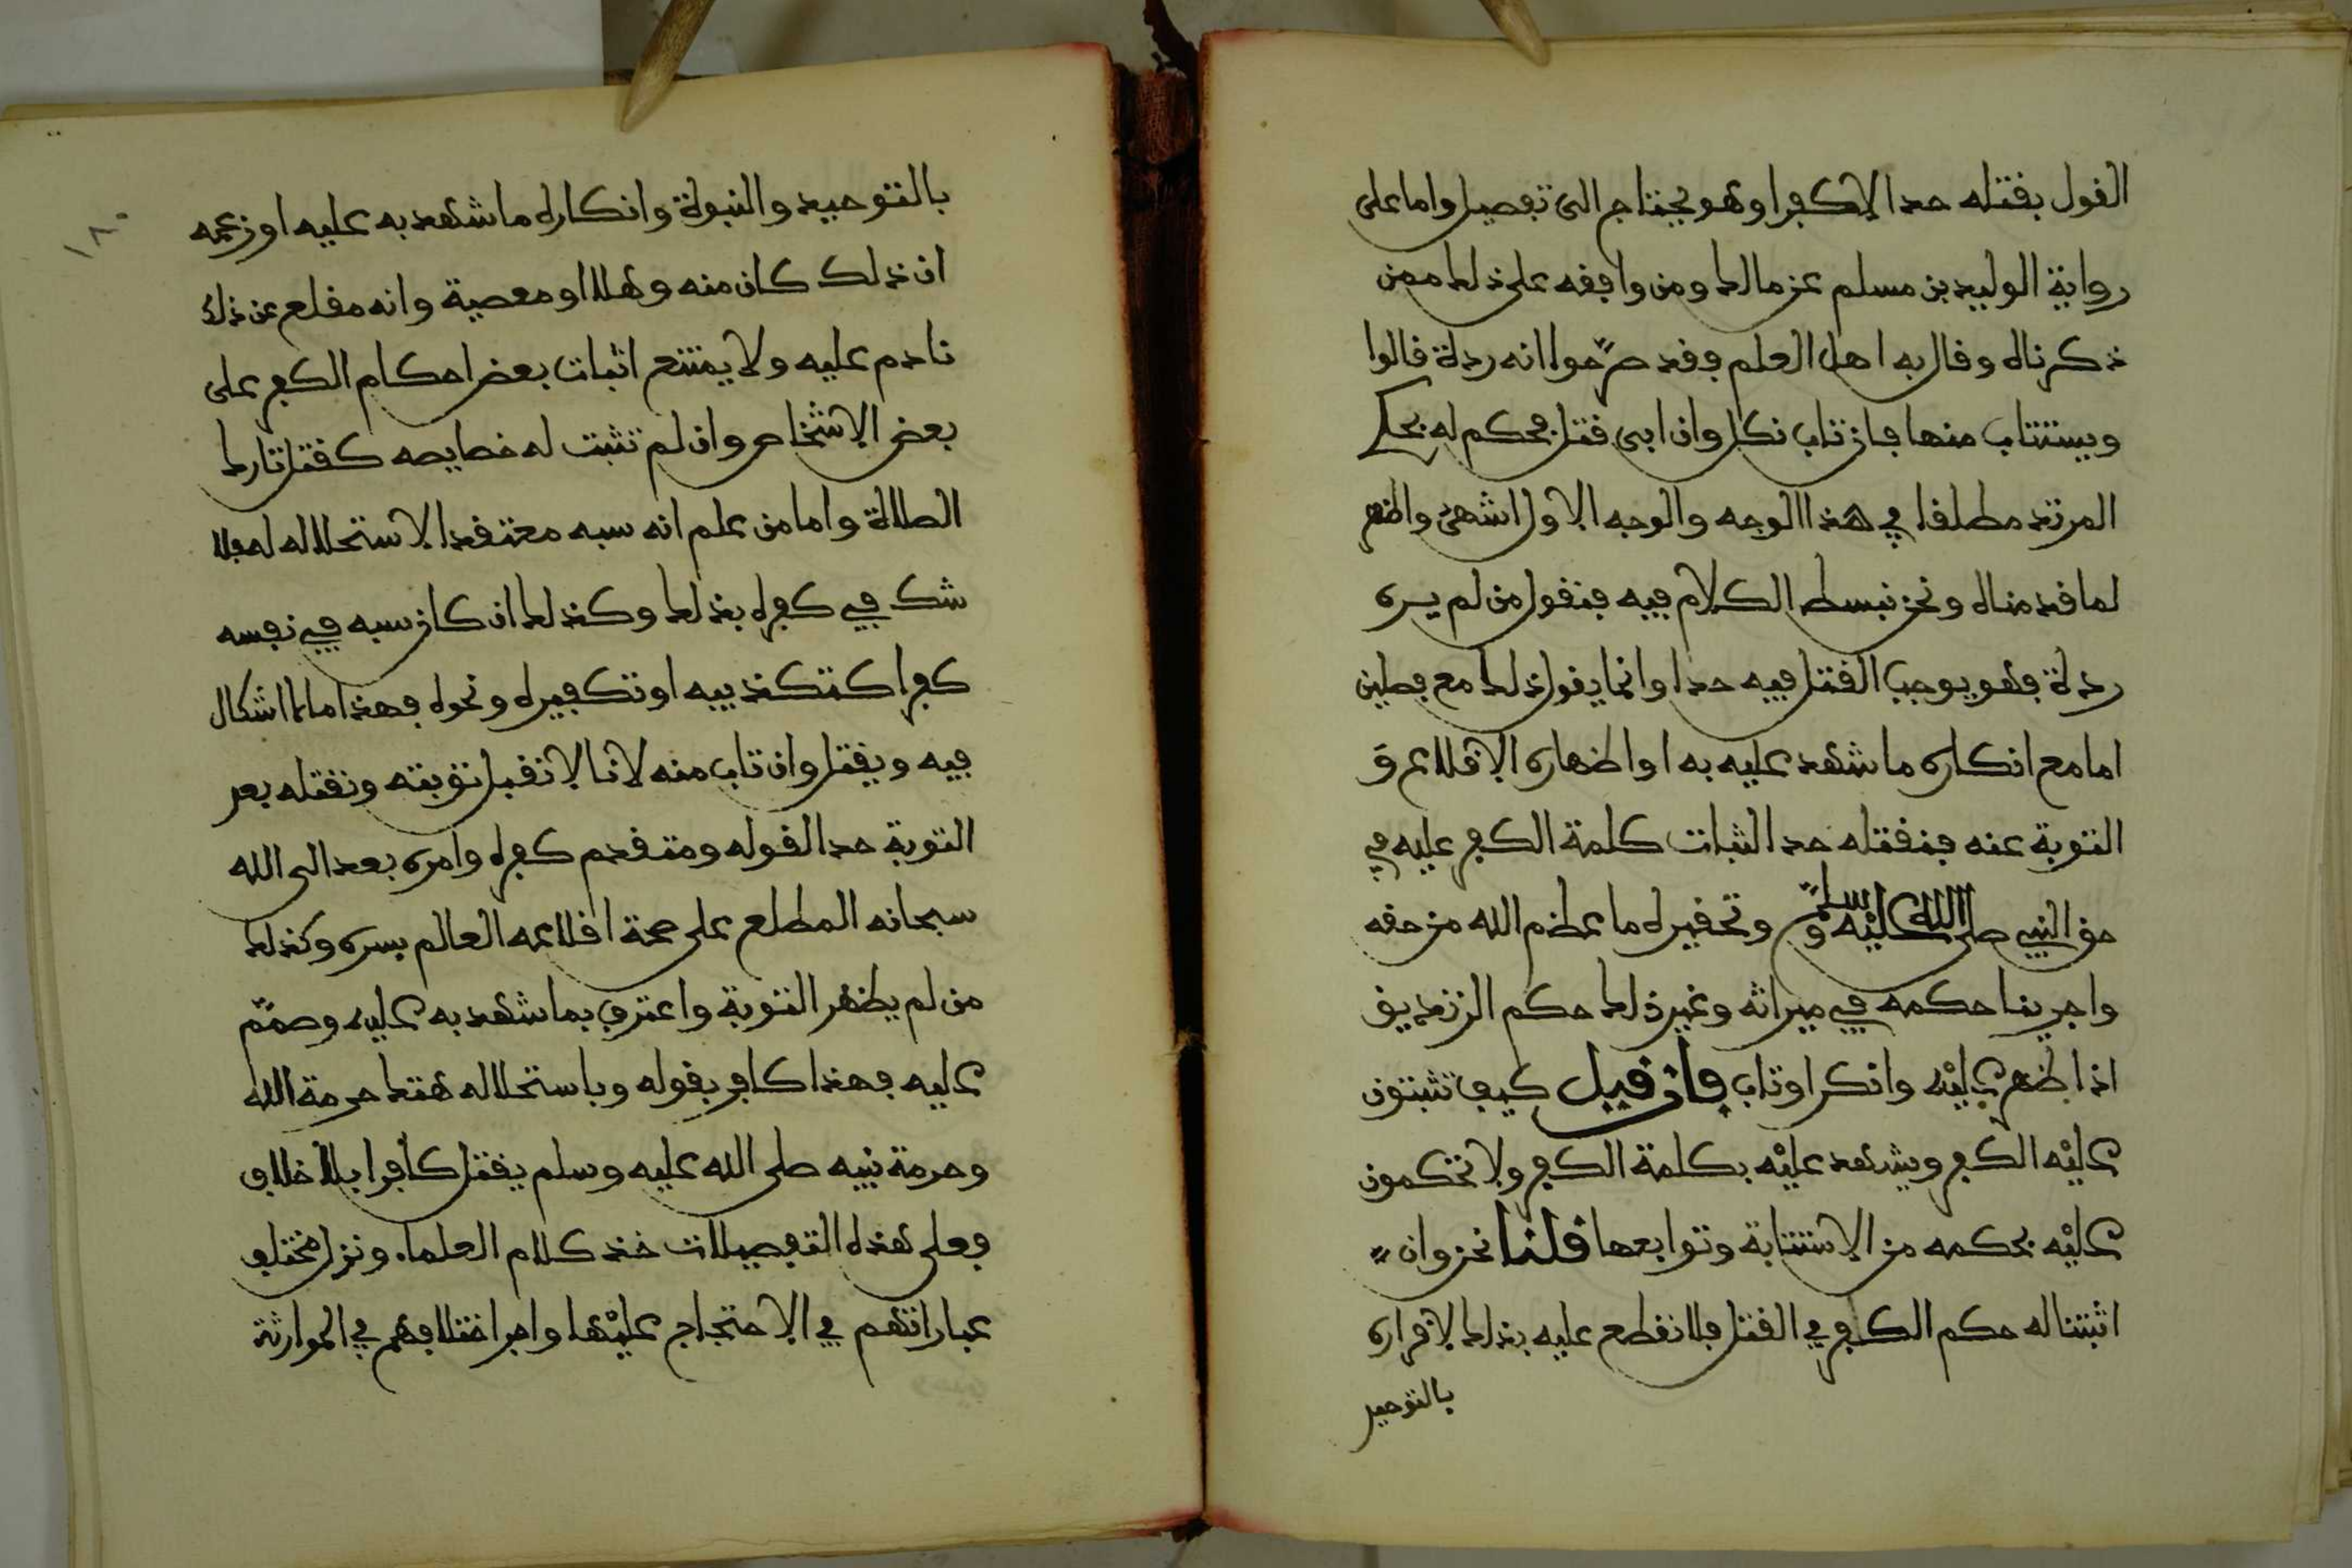 القول بقتله حدا لا كفرا وهو يحتاج الى تفصيل واما على
رواية الوليد بن مسلم عن مالك ومن وافقه على ذلك ممن
ذكرناه وقال به اهل العلم فقد صرّحوا انه ردة قالوا
ويستتاب منها فان تاب نكل وان ابى قتل فحكم له بحكم
المرتد مطلقا في هذا الوجه والوجه الاول اشهر واظهر
لما قدمناه ونحن نبسط الكلام فيه فنقول من لم يره
ردة فهو يوجب القتل فيه حدا وانما يقول ذلك مع فصلين
اما مع انكاره ما شهد عليه به او اظهاره الاقلاع و
التوبة عنه فنقتله حدا لثبات كلمة الكفر عليه في
حق النبي صلى الله عليه وسلم وتحقيره ما عظم الله من حقه
واجرينا حكمه في ميراثه وغير ذلك حكم الزنديق
اذا ظهر عليه وانكر او تاب فان قيل كيف تثبتون
عليه الكفر ويشهد عليه بكلمة الكفر ولا تحكمون
عليه بحكمه من الاستتابة وتوابعها قلنا نحن وان
اثبتنا له حكم الكفر في القتل فلا نقطع عليه بذلك لاقراره
بالتوحيد
١٨٠
بالتوحيد والنبوة وانكاره ما شهد به عليه او زعمه
ان ذلك كان منه وهلا او معصية وانه مقلع عن ذلك
نادم عليه ولا يمتنع اثبات بعض احكام الكفر على
بعض الاشخاص وان لم تثبت له خصايصه كقتل تارك
الصلاة واما من علم انه سبه معتقدا لاستحلاله فلا
شك في كفره بذلك وكذلك ان كان سبه في نفسه
كفرا كتكذيبه او تكفيره ونحوه فهذا ما لا اشكال
فيه ويقتل وان تاب منه لانا لا نقبل توبته ونقتله بعد
التوبة حدا لقوله ومتقدم كفره وامره بعد الى الله
سبحانه المطلع على صحة اقلاعه العالم بسره وكذلك
من لم يظهر التوبة واعترف بما شهد به عليه وصمّم
عليه فهذا كافر بقوله وباستحلاله هتك حرمة الله
وحرمة نبيه صلى الله عليه وسلم يقتل كافرا بلا خلاف
فعلى هذه التفصيلات خذ كلام العلماء ونزل مختلف
عباراتهم في الاحتجاج عليها واجر اختلافهم في الموارثة